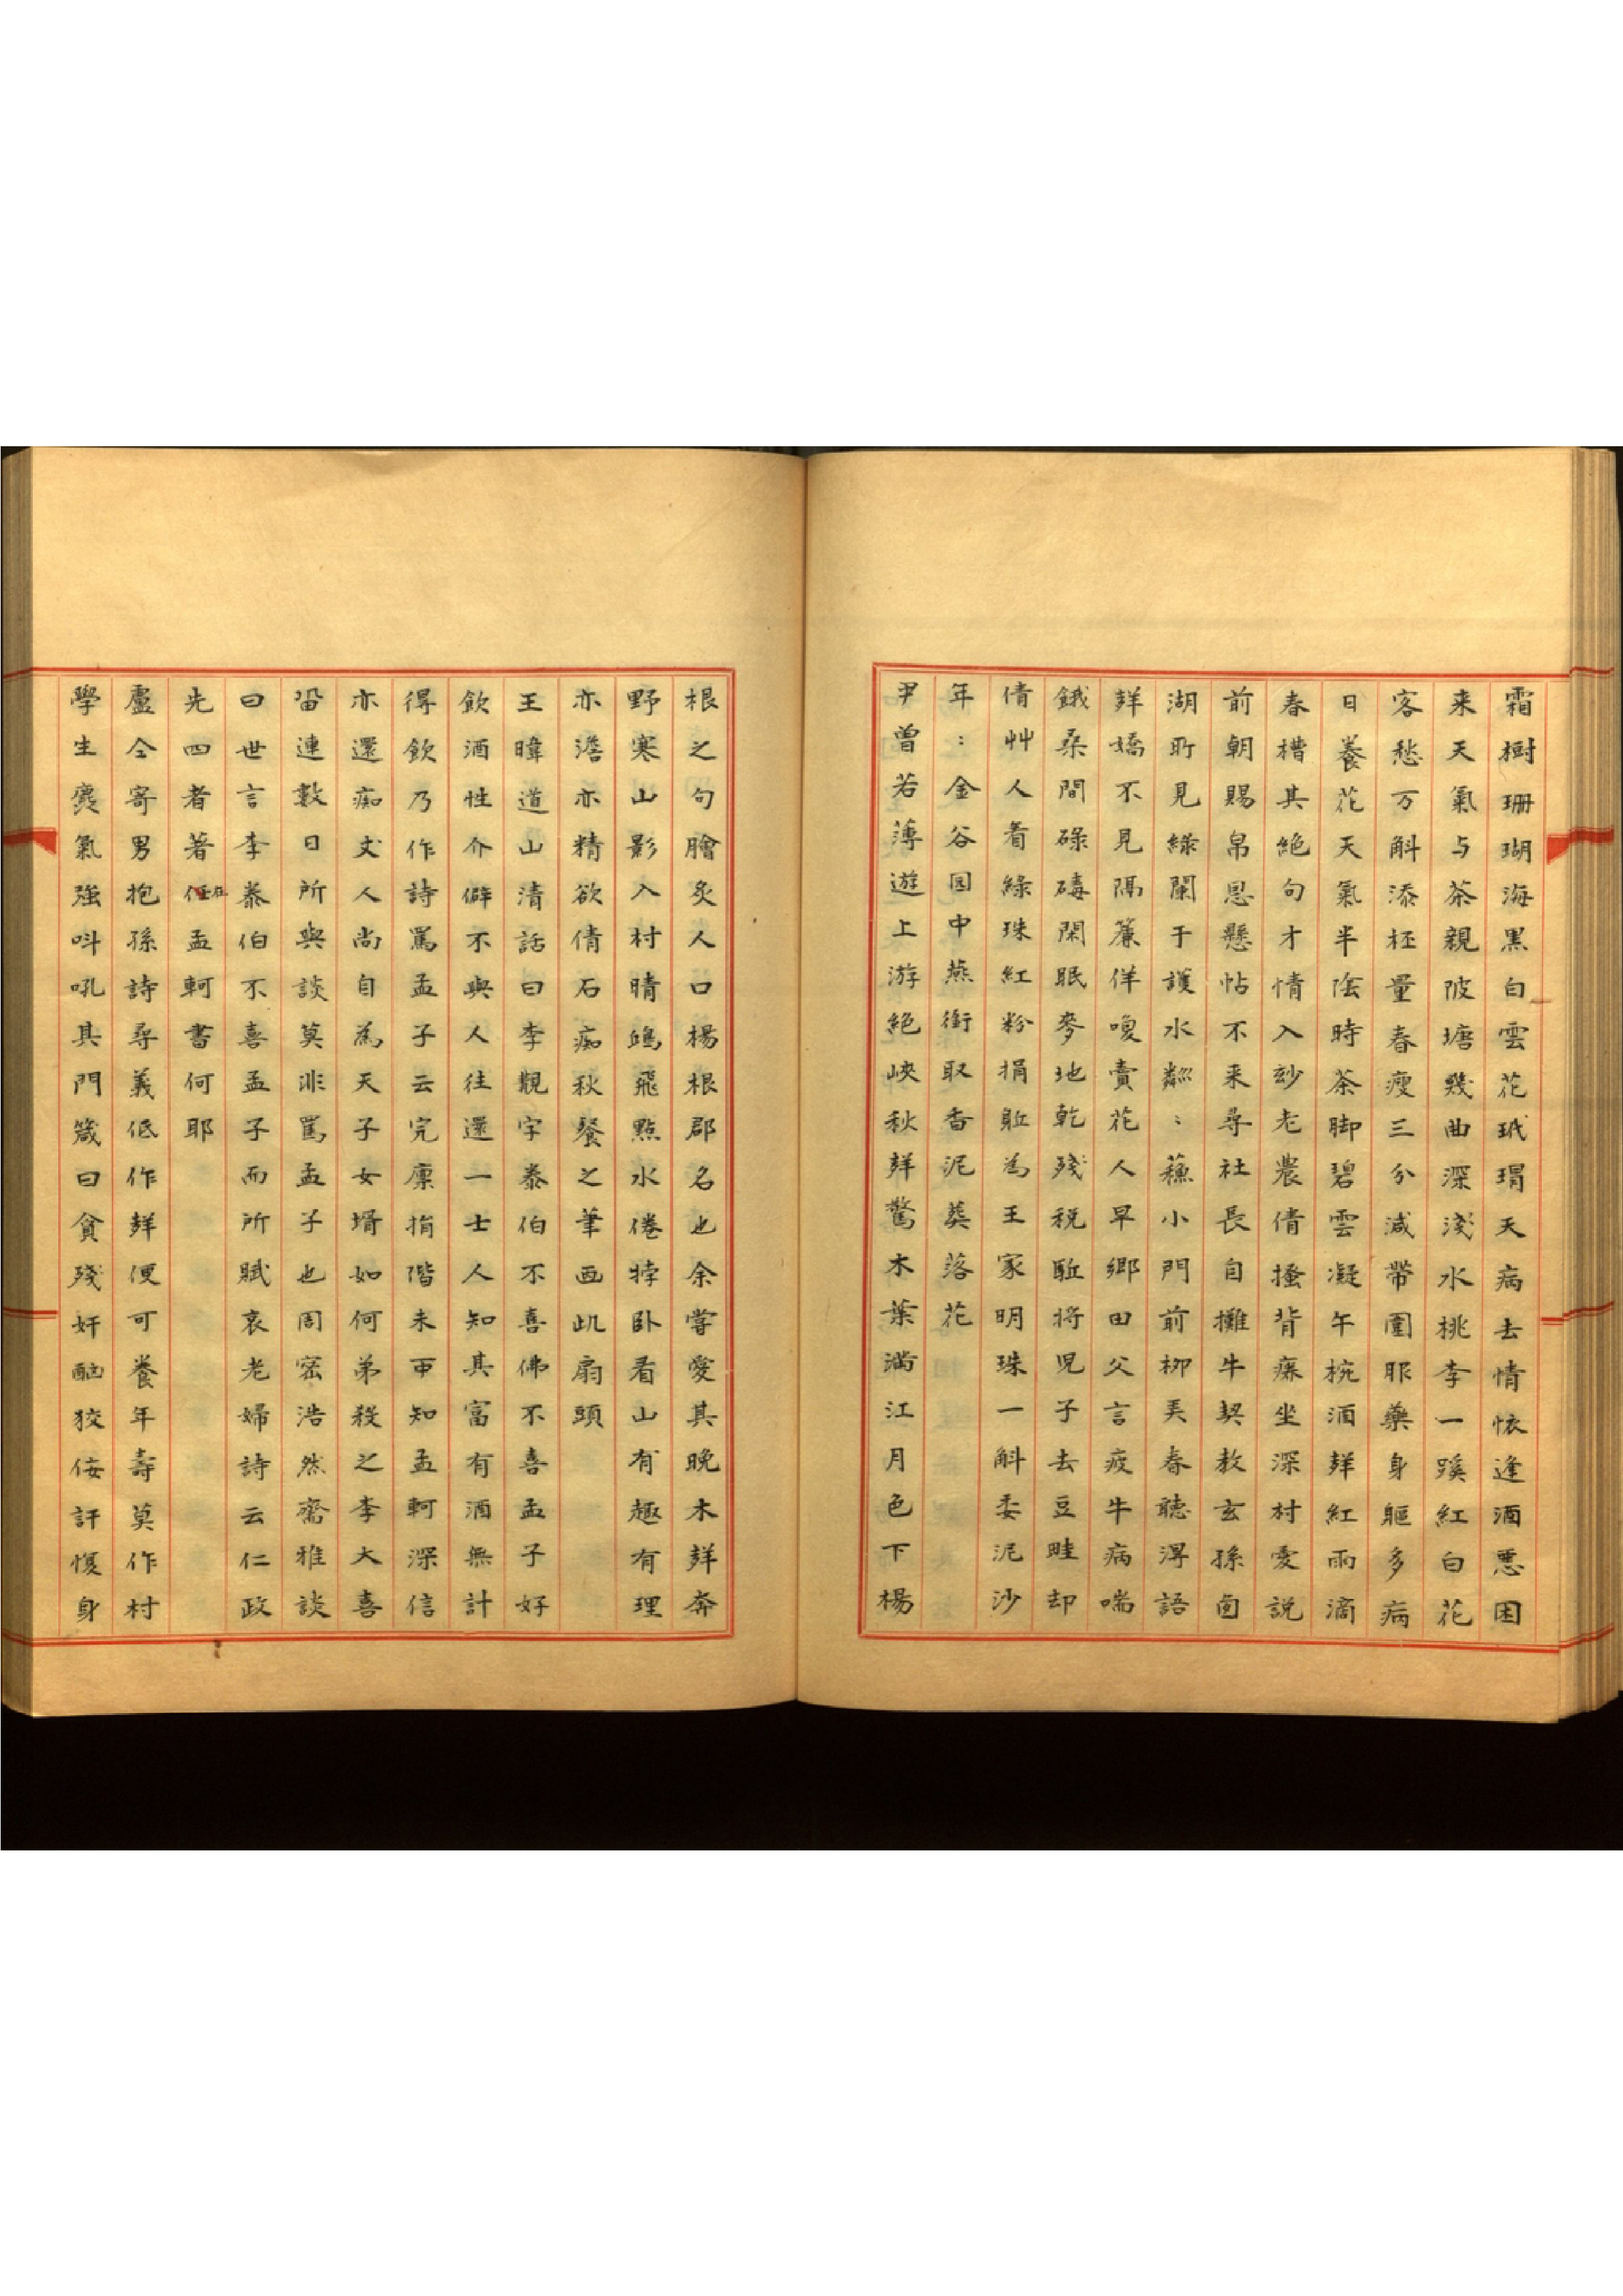 霜樹珊瑚海黑白雲花玳瑁天病去情悰逢酒惡困
来天氣与茶親陂塘幾曲深淺水桃李一蹊紅白花
客愁万斛添柸量春瘦三分減帶圍服藥身軀多病
日養花天氣半陰時茶脚碧雲凝午椀酒䒶紅雨滴
春槽其絕句才情入玅老農倩搔背癢坐深村愛說
前朝賜帛恩懸帖不来尋社長自攤牛契教玄孫面
湖所見綠闌干護水粼:蘓小門前柳弄春聽淂語
䒶嬌不見隔簾佯嗅賣花人早鄉田父言疲牛病喘
餓桑間碌碡閑眠麥地乾殘稅駈將児子去豆畦却
倩艸人看綠珠紅粉捐軀為王家明珠一斛委泥沙
年:金谷园中燕銜取香泥葬落花
尹曽若薄遊上游絕峽秋䒶驚木葉滿江月色下楊
根之句膾炙人口楊根郡名也余嘗愛其晚木䒶奔
野寒山影入村晴鴟飛點水倦犊卧看山有趣有理
亦澹亦精欲倩石痴秋䬸之筆画此扇頭
王暐道山清話曰李覯字泰伯不喜佛不喜孟子好
飲酒性介僻不與人往還一士人知其富有酒無計
得飲乃作詩罵孟子云完廩捐階未可知孟軻深信
亦還痴丈人尚自為天子女壻如何弟殺之李大喜
畱連數日所與談莫非罵孟子也周宻浩然齋雅談
曰世言李泰伯不喜孟子而所賦哀老婦詩云仁政
先四者著在孟軻書何耶
盧仝寄男抱孫詩尋義低作䒶便可養年壽莫作村
學生麄氣強呌吼其門箴曰貪殘奸酗狡佞訐愎身